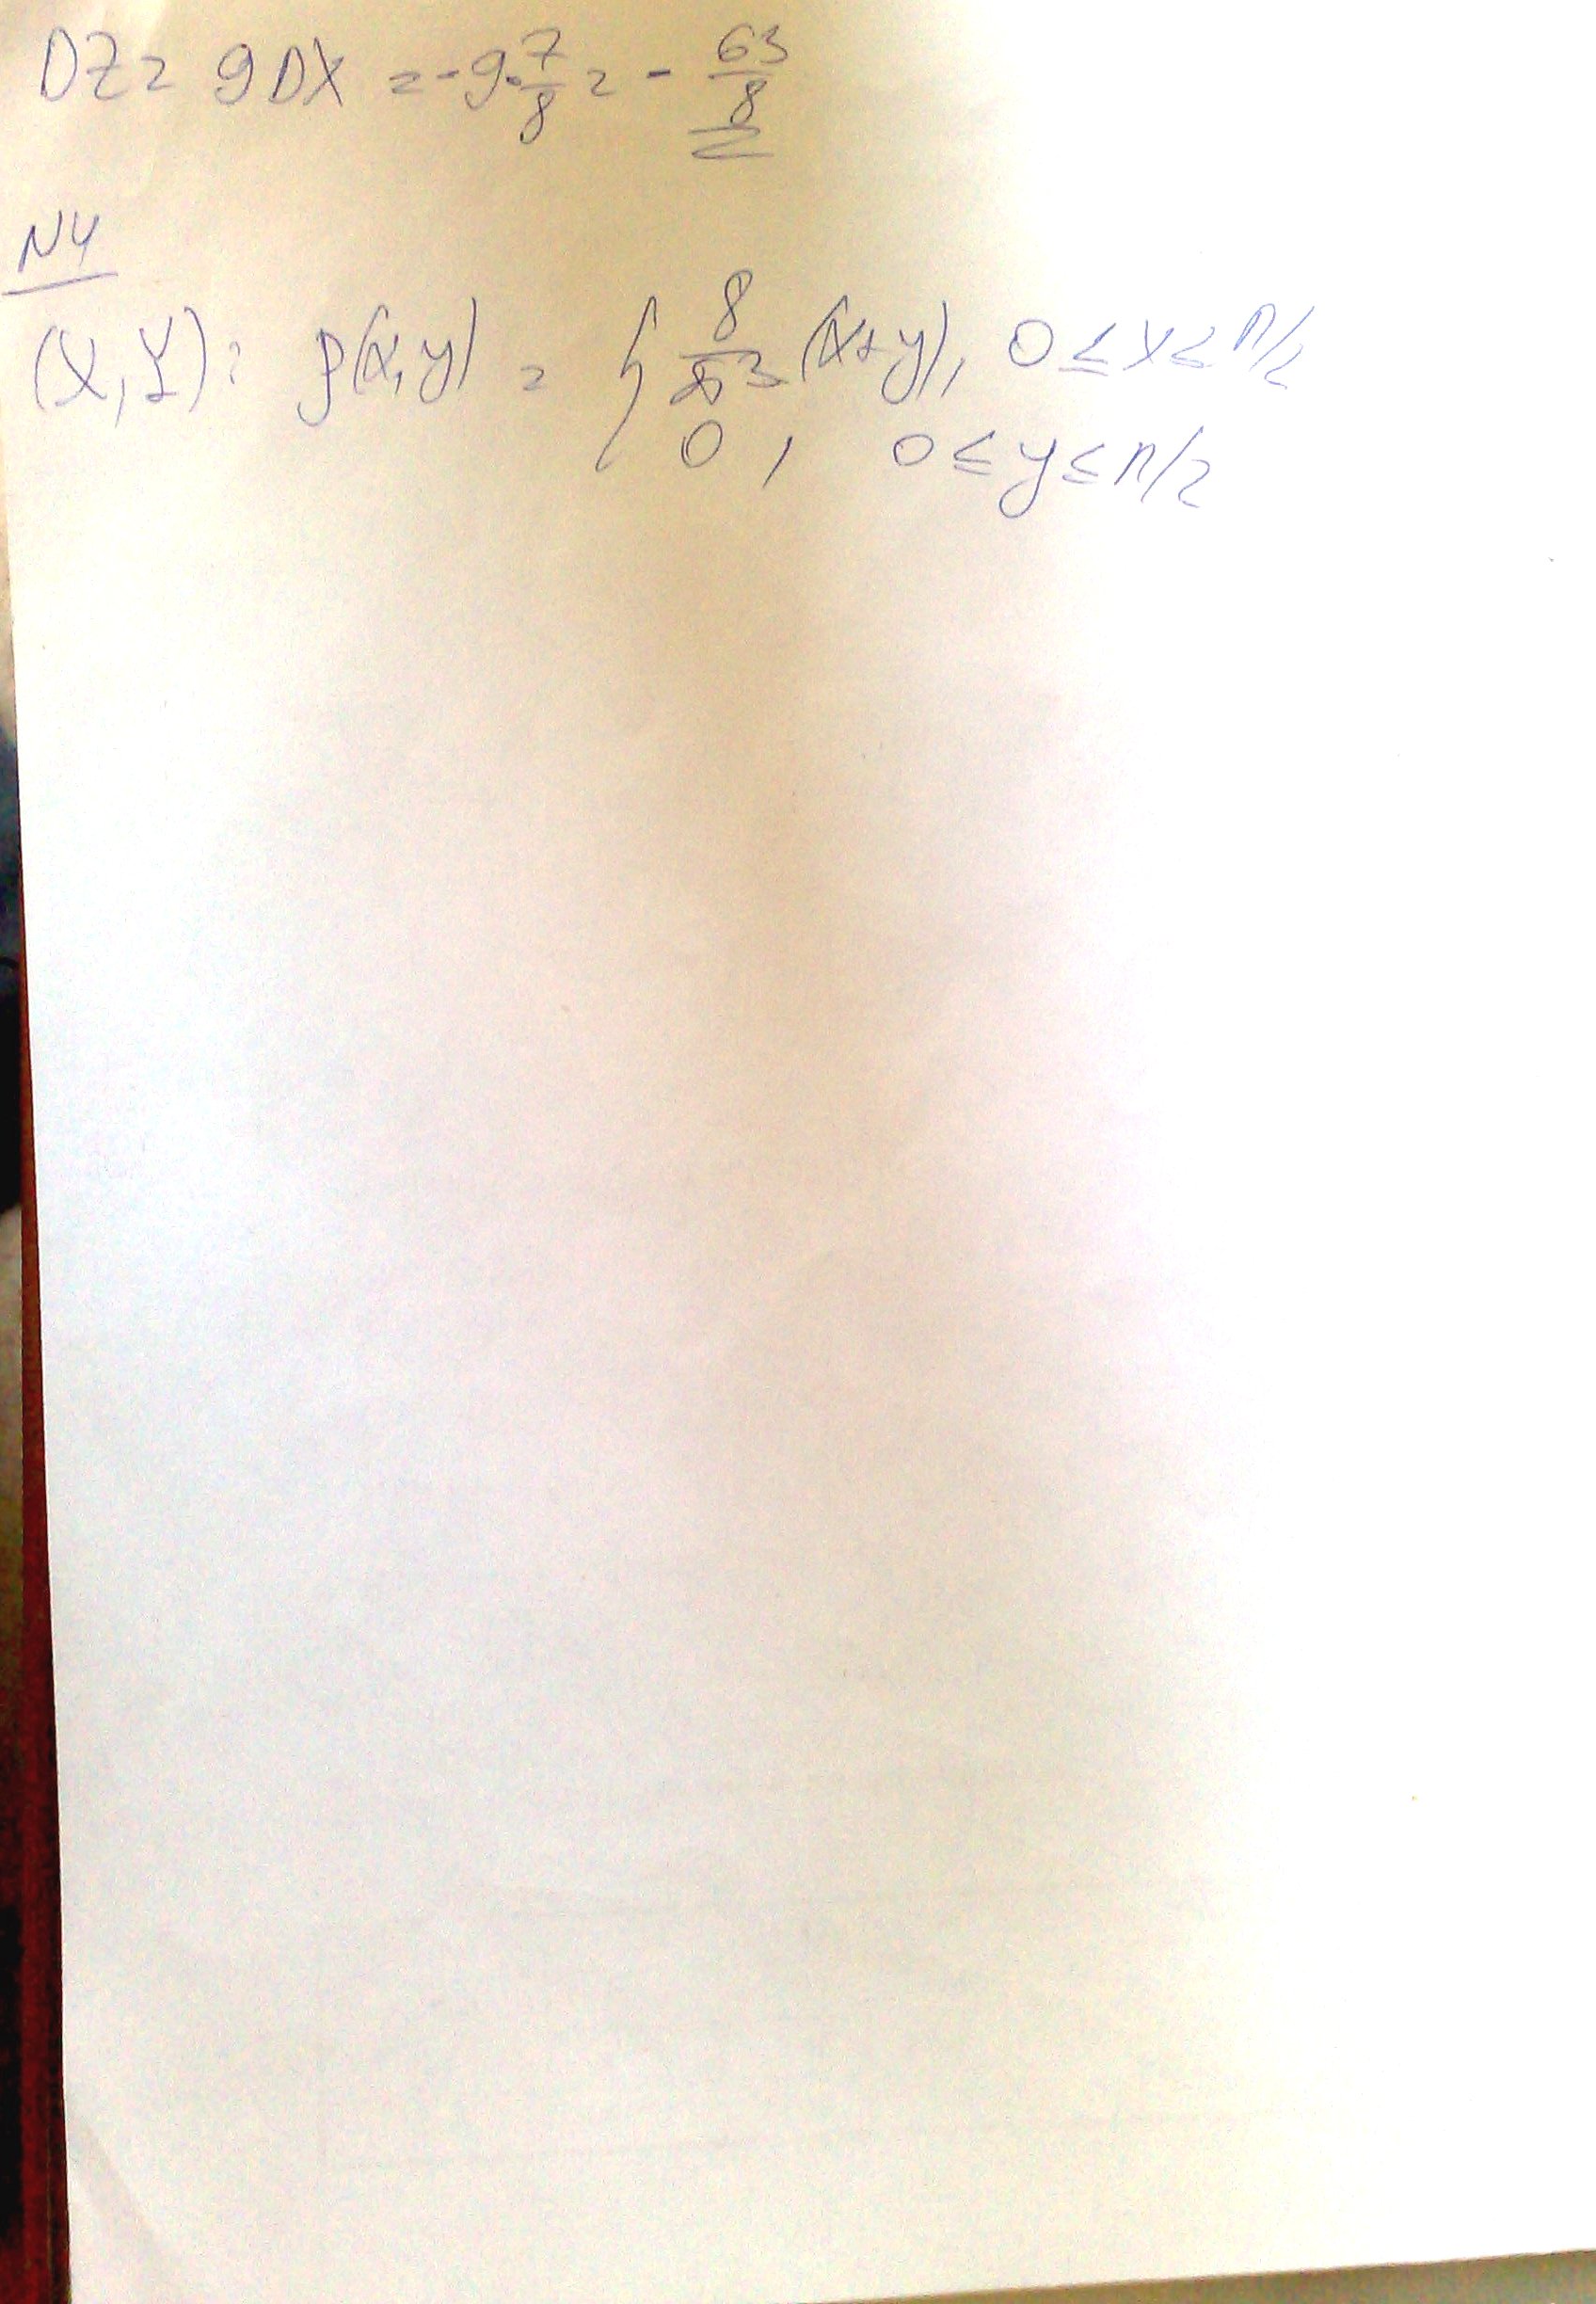 DZ = 9DX = -9·7/8 = - 63/8
N4
(X,Y): p(x,y) = { 8/π³ (x+y), 0 ≤ x ≤ π/2
0, 0 ≤ y ≤ π/2